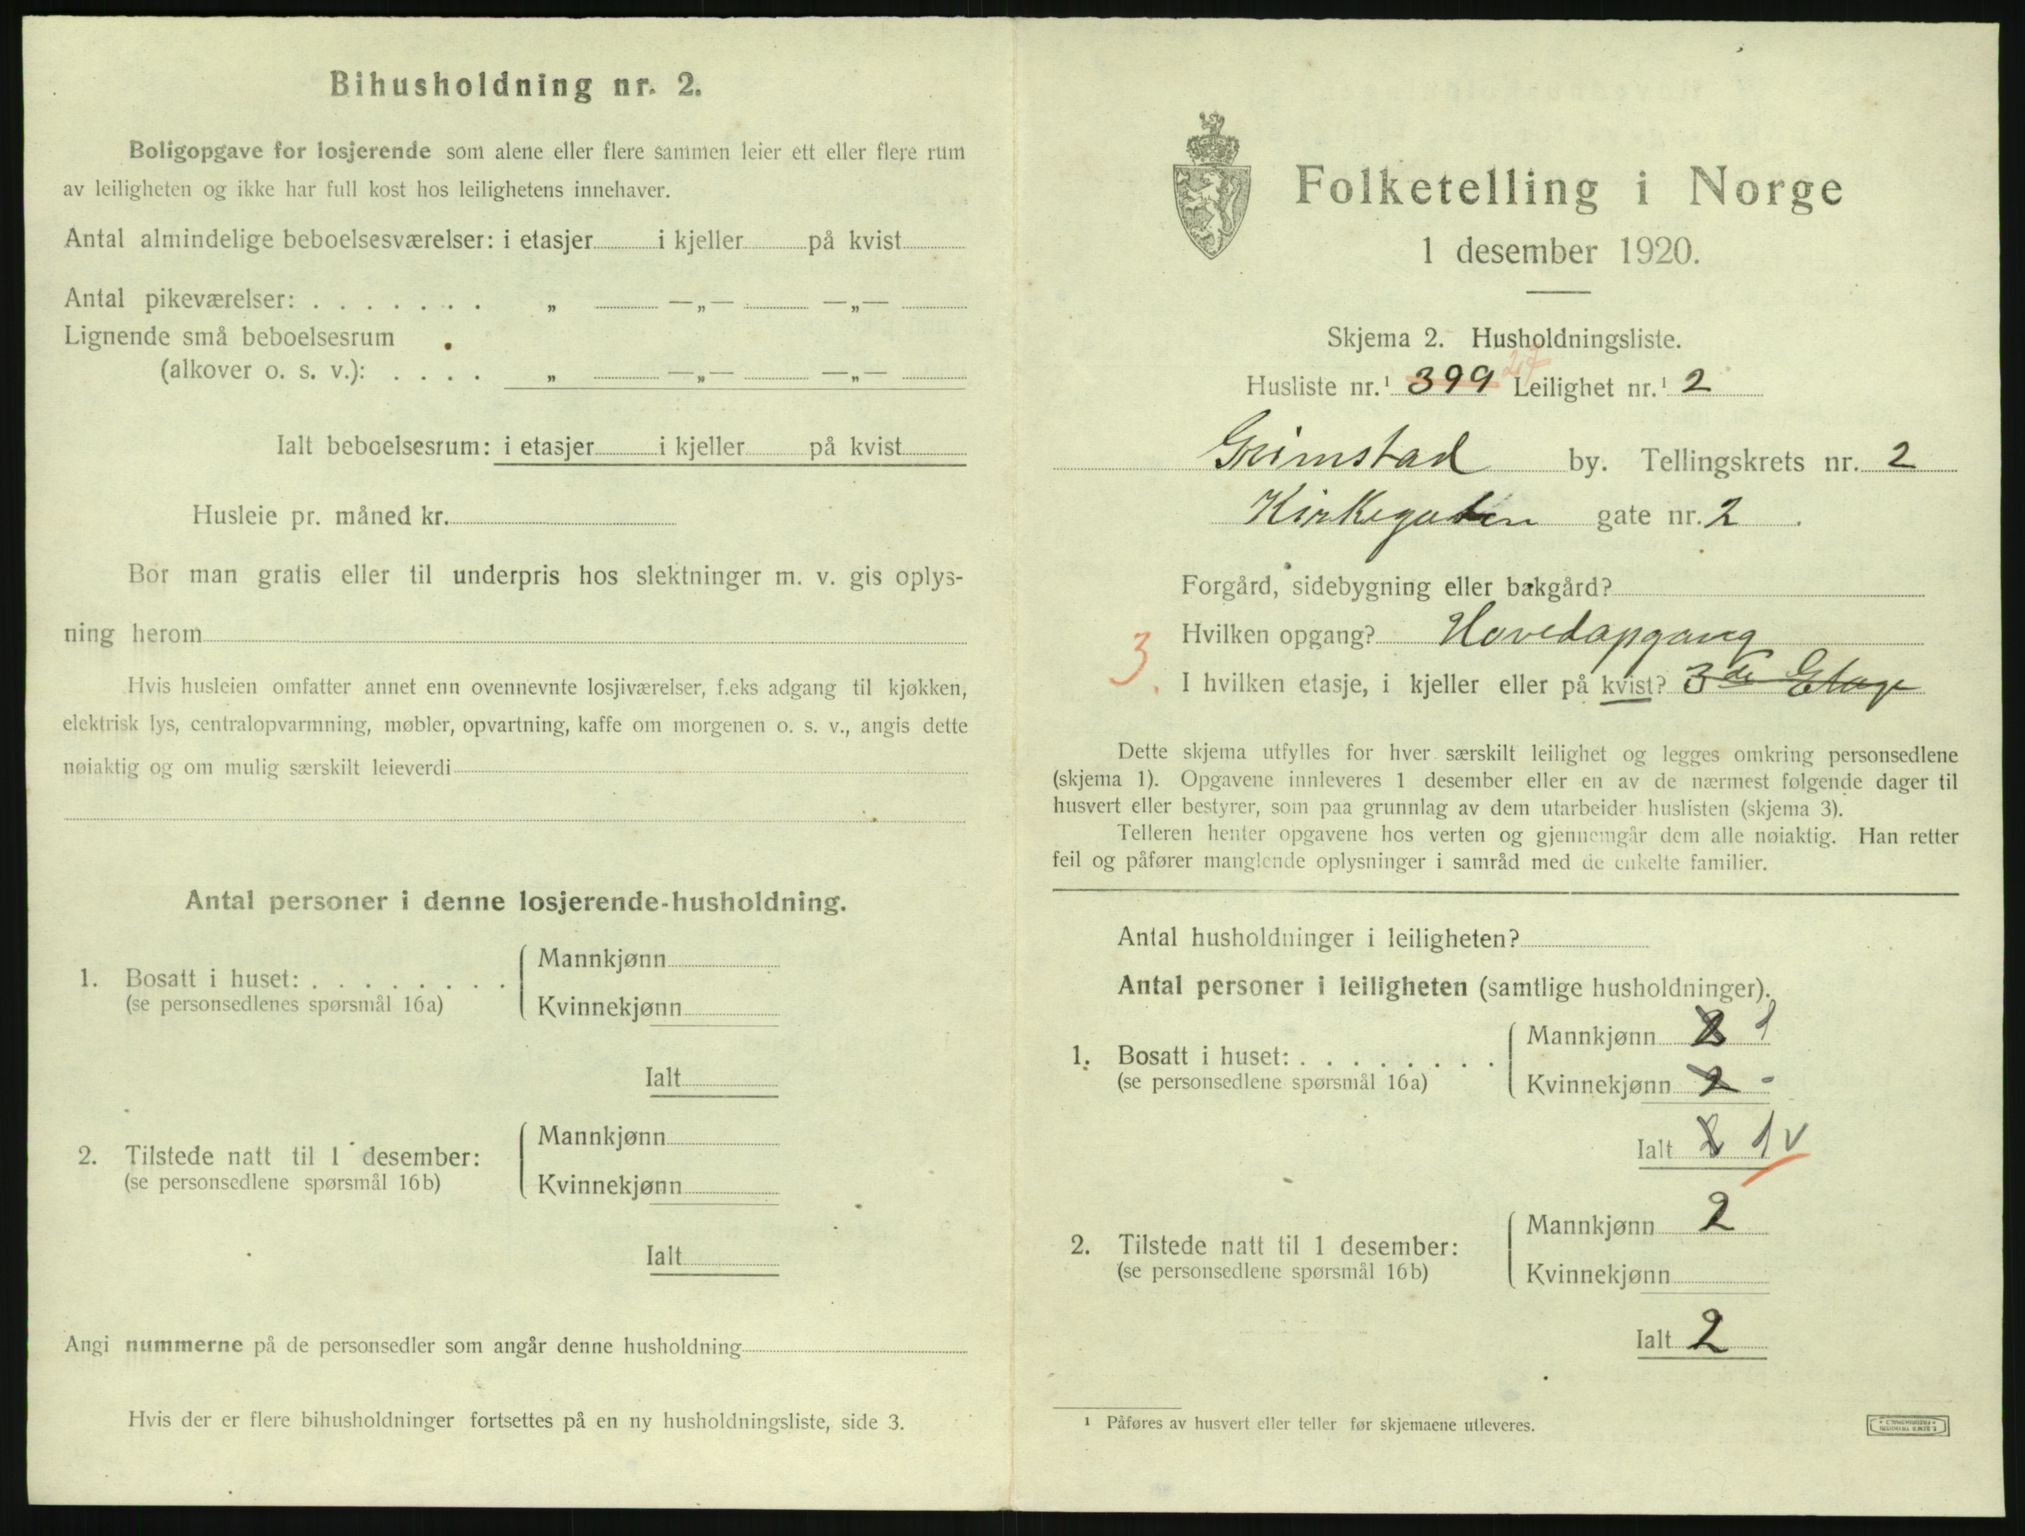 Bihusholdning nr. 2.
Boligopgave for losjerende som alene eller flere sammen leier ett eller flere rum
av leiligheten og ikke har full kost hos leilighetens innehaver.
Antal almindelige beboelsesværelser: i etasjer i kjeller på kvist
Antal pikeværelser: . . . . . . . „ —„— —„—
Lignende små beboelsesrum
(alkover o. s. v.): . . . . „ —„— —„—
Ialt beboelsesrum: i etasjer i kjeller på kvist
Husleie pr. måned kr.
Bor man gratis eller til underpris hos slektninger m. v. gis oplys-
ning herom
Hvis husleien omfatter annet enn ovennevnte losjiværelser, f.eks adgang til kjøkken,
elektrisk lys, centralopvarmning, møbler, opvartning, kaffe om morgenen o. s. v., angis dette
nøiaktig og om mulig særskilt leieverdi
Antal personer i denne losjerende-husholdning.
1. Bosatt i huset: . . . . . . . . Mannkjønn
(se personsedlenes spørsmål 16a) Kvinnekjønn
Ialt
2. Tilstede natt til 1 desember: Mannkjønn
(se personsedlene spørsmål 16b) Kvinnekjønn
Ialt
Angi nummerne på de personsedler som angår denne husholdning
Hvis der er flere bihusholdninger fortsettes på en ny husholdningsliste, side 3.
Folketelling i Norge
1 desember 1920.
Skjema 2. Husholdningsliste.
27
Husliste nr.¹ 399 Leilighet nr.¹ 2
Grimstad by. Tellingskrets nr. 2
Kirkegaten gate nr. 2 .
Forgård, sidebygning eller bakgård?
Hvilken opgang? Hovedopgang
3. I hvilken etasje, i kjeller eller på kvist? 3de Etage
Dette skjema utfylles for hver særskilt leilighet og legges omkring personsedlene
(skjema 1). Opgavene innleveres 1 desember eller en av de nærmest følgende dager til
husvert eller bestyrer, som paa grunnlag av dem utarbeider huslisten (skjema 3).
Telleren henter opgavene hos verten og gjennemgår dem alle nøiaktig. Han retter
feil og påfører manglende oplysninger i samråd med de enkelte familier.
Antal husholdninger i leiligheten?
Antal personer i leiligheten (samtlige husholdninger).
1. Bosatt i huset: . . . . . . . . Mannkjønn 2 1
(se personsedlene spørsmål 16a) Kvinnekjønn 2 -
Ialt 2 1 v
2. Tilstede natt til 1 desember: Mannkjønn 2
(se personsedlene spørsmål 16b) Kvinnekjønn
Ialt 2
¹ Påføres av husvert eller teller før skjemaene utleveres.